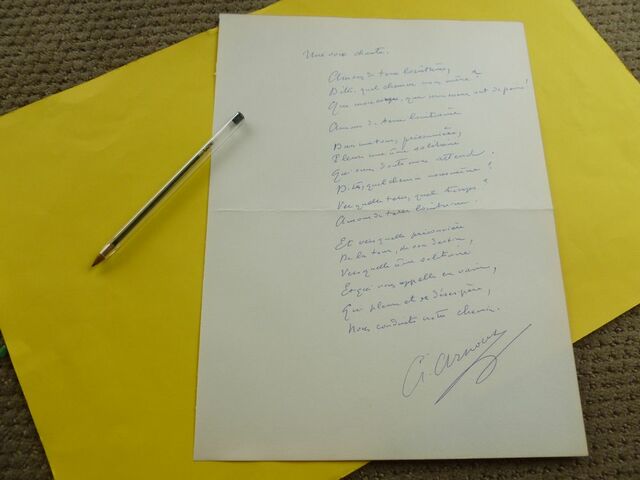 Une voix chante.
Amour de terre lointaine,
Dites, quel chemin nous mène
Que mon cœur, que mon cœur ont de peine!
Amour de terre lointaine
Dans ma tour, prisonnière,
Pleure une âme solitaire
Qui sans doute nous attend.
Dites, quel chemin nous mène?
Vers quelle terre, quel temps?
Amour de terre lointaine.
Et vers quelle prisonnière
De la tour, de son destin,
Vers quelle âme solitaire
Et qui nous appelle en vain,
Qui pleure et se désespère,
Nous conduit notre chemin.
A. Arnoux